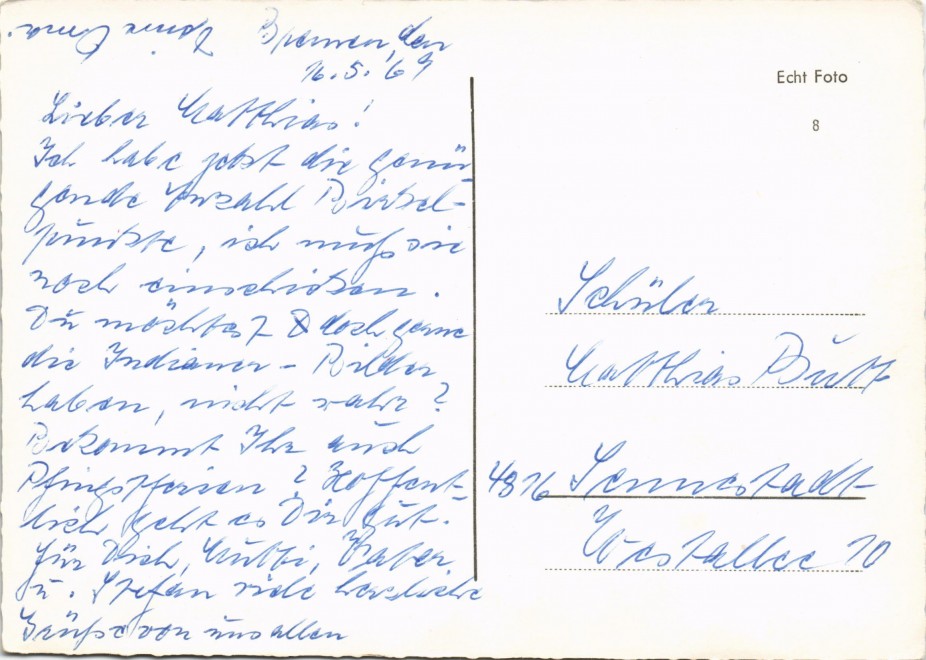 Bremen, den
16.5.69
Lieber Matthias!
Ich habe jetzt die genü-
gende Anzahl Birkel-
punkte, ich muß sie
noch einschicken.
Du möchtest doch gerne
die Indianer-Bilder
haben, nicht wahr?
Bekommt Ihr auch
Pfingstferien? Hoffent-
lich geht es Dir gut.
Für Dich, Mutti, Vater
u. Stefan viele herzliche
Grüße von uns allen
Deine Oma.
Echt Foto
8
Schüler
Matthias Butt
4816 Sennestadt
Vestallee 10